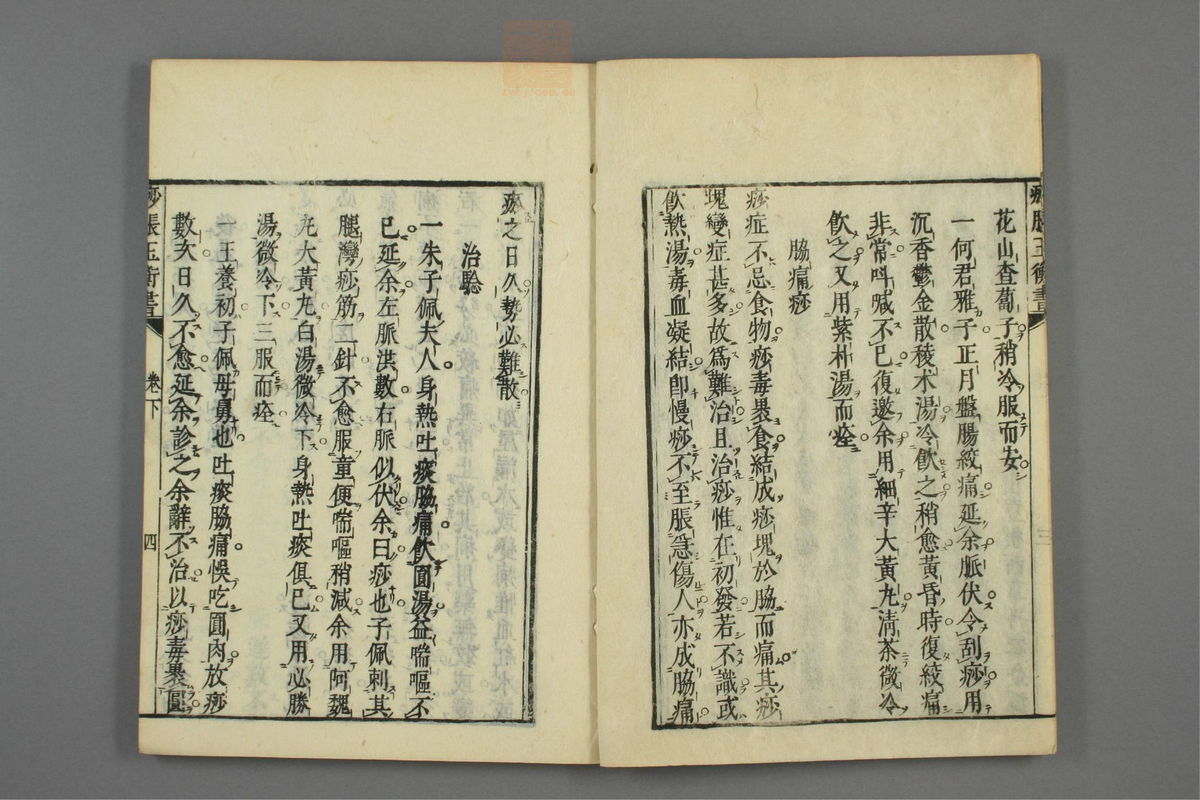 痧脹玉衡書
花山查蔔子稍冷服而安
一何君雅子正月盤腸絞痛延余脈伏令刮痧用
沉香鬱金散稜术湯冷飲之稍愈黃昏時復絞痛
非常呌喊不已復邀余用細辛大黃丸清茶微冷
飲之又用紫朴湯而痊
脇痛痧
痧症不忌食物痧毒裹食結成痧塊於脇而痛其痧
塊變症甚多故爲難治且治痧惟在初發若不識或
飲熱湯毒血凝結卽慢痧不至脹急傷人亦成脇痛
三
痧之日久勢必難散
治騐
一朱子佩夫人身熱吐痰脇痛飲圓湯益喘嘔不
已延余左脈洪數右脈似伏余曰痧也子佩刺其
腿灣痧筋二針不愈服童便喘嘔稍減余用阿魏
丸大黃丸白湯微冷下身熱吐痰俱已又用必勝
湯微冷下三服而痊
一王養初子佩母舅也吐痰脇痛悞吃圓肉放痧
數次日久不愈延余診之余辭不治以痧毒裹圓
痧脹玉衡書 卷下 四